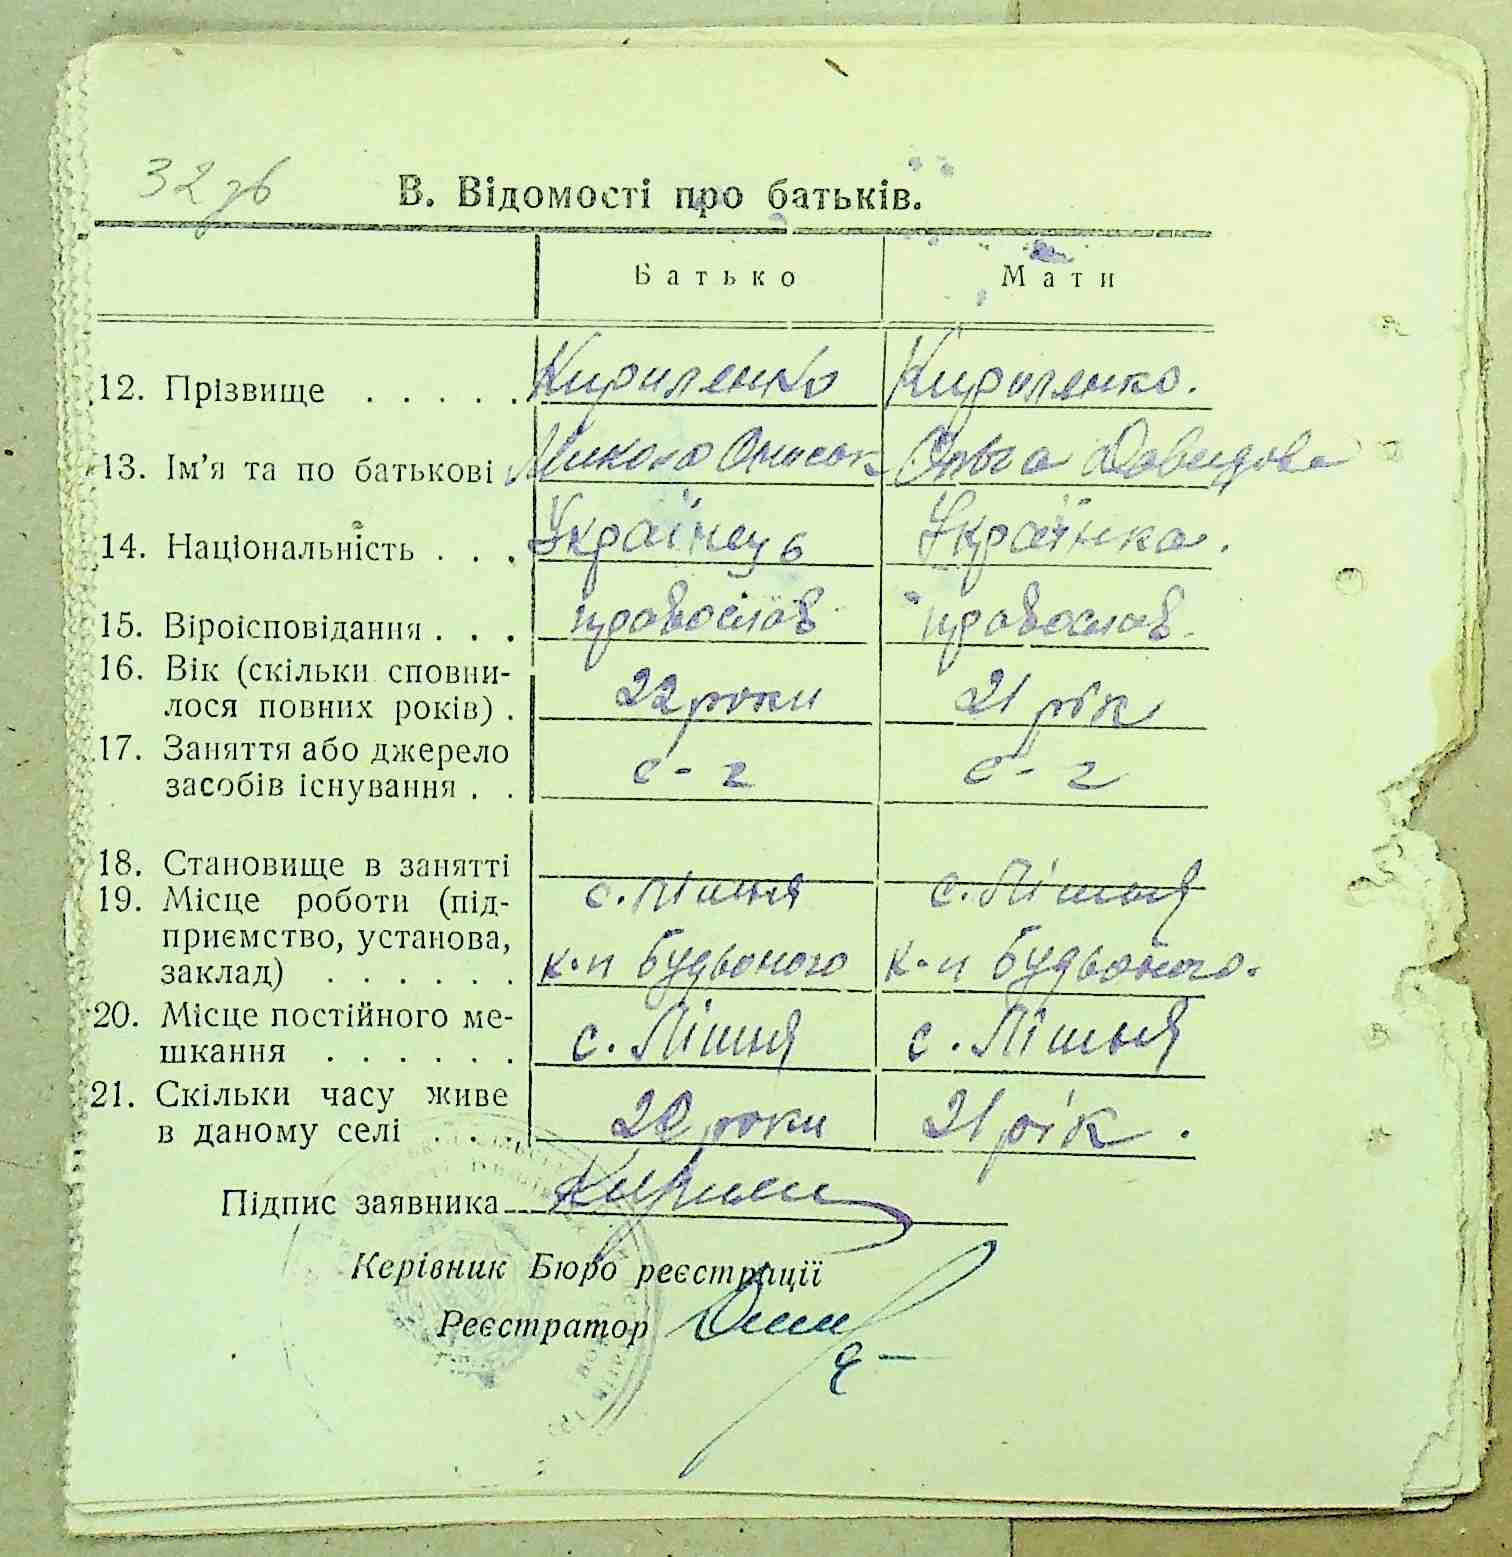 32 зв
В. Відомості про батьків.
Батько Мати
12. Прізвище . . . . . Кириленко Кириленко.
13. Ім'я та по батькові Микола Ольга Давидова
14. Національність . . . Українець Українка.
15. Віроісповідання . . . православ православ.
16. Вік (скільки сповни-
лося повних років) . 22 роки 21 рік
17. Заняття або джерело
засобів існування . . с-г с-г
18. Становище в занятті
19. Місце роботи (під- с. Пішня с. Пішня
приємство, установа,
заклад) . . . . . . к-п Будьоного к-п Будьоного.
20. Місце постійного ме-
шкання . . . . . . с. Пішня с. Пішня
21. Скільки часу живе
в даному селі . . . 22 роки 21 рік.
Підпис заявника
Керівник Бюро реєстрації
Реєстратор